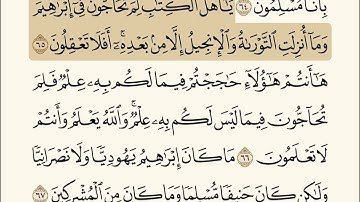 بِأَنَّا مُسْلِمُونَ ٦٤ يَٰٓأَهْلَ ٱلْكِتَٰبِ لِمَ تُحَآجُّونَ فِيٓ إِبْرَٰهِيمَ
وَمَآ أُنزِلَتِ ٱلتَّوْرَىٰةُ وَٱلْإِنجِيلُ إِلَّا مِنۢ بَعْدِهِۦٓ ۚ أَفَلَا تَعْقِلُونَ ٦٥
هَٰٓأَنتُمْ هَٰٓؤُلَآءِ حَٰجَجْتُمْ فِيمَا لَكُم بِهِۦ عِلْمٌ فَلِمَ
تُحَآجُّونَ فِيمَا لَيْسَ لَكُم بِهِۦ عِلْمٌ ۚ وَٱللَّهُ يَعْلَمُ وَأَنتُمْ
لَا تَعْلَمُونَ ٦٦ مَا كَانَ إِبْرَٰهِيمُ يَهُودِيًّا وَلَا نَصْرَانِيًّا
وَلَٰكِن كَانَ حَنِيفًا مُّسْلِمًا وَمَا كَانَ مِنَ ٱلْمُشْرِكِينَ ٦٧